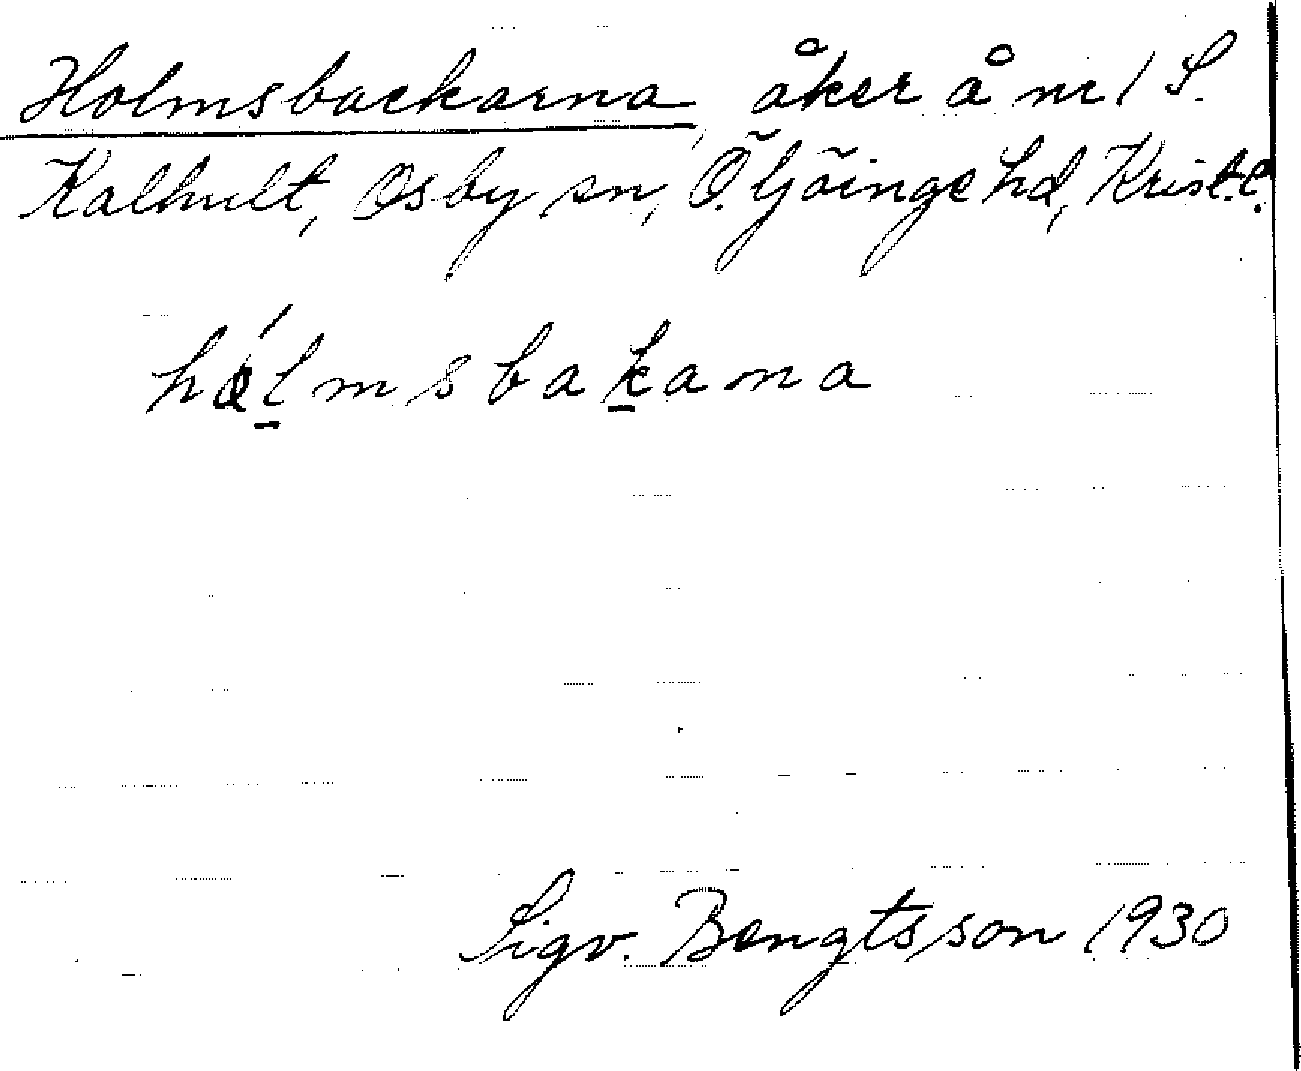 Holmsbackarna, åker å nr 1 S.
Kalhult, Osby sn, Ö. Göinge hd, Krist. l.
hólmsbakana
Sigv. Bengtsson 1930